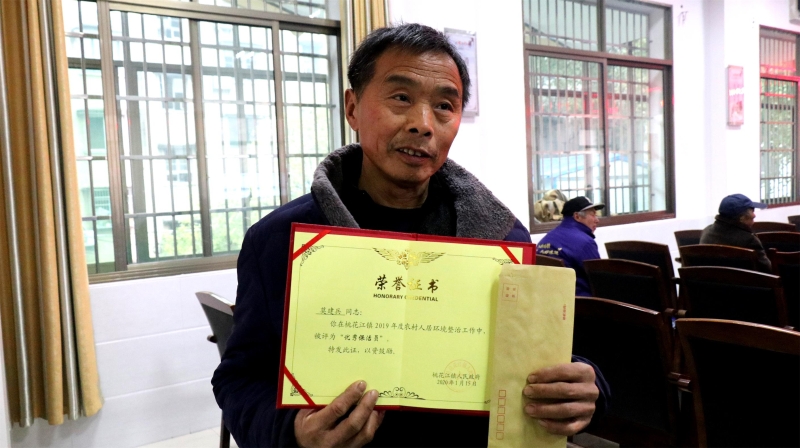 荣誉证书
HONORARY CREDENTIAL
建兵 同志:
你在桃花江镇2019年度农村人居环境整治工作中,
被评为“优秀保洁员”。
特发此证,以资鼓励。
桃花江镇人民政府
2020年1月15日